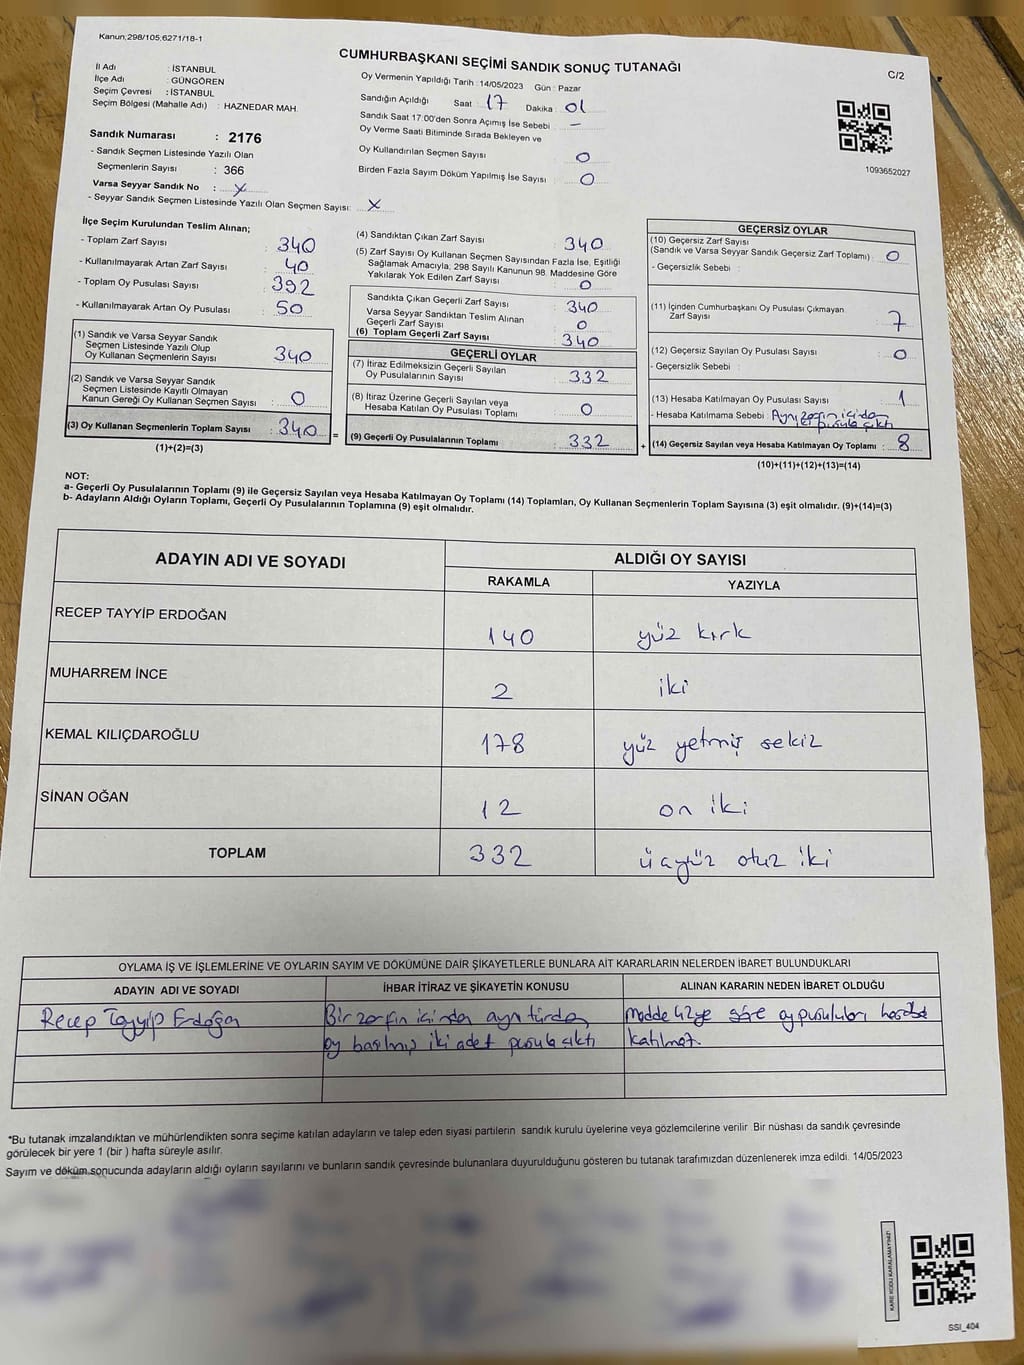 Kanun;298/105,6271/18-1
CUMHURBAŞKANI SEÇİMİ SANDIK SONUÇ TUTANAĞI
C/2
İl Adı : İSTANBUL
İlçe Adı : GÜNGÖREN
Seçim Çevresi : İSTANBUL
Seçim Bölgesi (Mahalle Adı) : HAZNEDAR MAH.
Oy Vermenin Yapıldığı Tarih : 14/05/2023 Gün : Pazar
Sandığın Açıldığı Saat : 17 Dakika : 01
Sandık Saat 17:00'den Sonra Açımış İse Sebebi : —
Oy Verme Saati Bitiminde Sırada Bekleyen ve
Oy Kullandırılan Seçmen Sayısı : 0
Birden Fazla Sayım Döküm Yapılmış İse Sayısı : 0
1093652027
Sandık Numarası : 2176
- Sandık Seçmen Listesinde Yazılı Olan
Seçmenlerin Sayısı : 366
Varsa Seyyar Sandık No : X
- Seyyar Sandık Seçmen Listesinde Yazılı Olan Seçmen Sayısı: X
İlçe Seçim Kurulundan Teslim Alınan;
- Toplam Zarf Sayısı : 340
- Kullanılmayarak Artan Zarf Sayısı : 40
- Toplam Oy Pusulası Sayısı : 392
- Kullanılmayarak Artan Oy Pusulası : 50
(1) Sandık ve Varsa Seyyar Sandık
Seçmen Listesinde Yazılı Olup
Oy Kullanan Seçmenlerin Sayısı : 340
(2) Sandık ve Varsa Seyyar Sandık
Seçmen Listesinde Kayıtlı Olmayan
Kanun Gereği Oy Kullanan Seçmen Sayısı : 0
(3) Oy Kullanan Seçmenlerin Toplam Sayısı : 340
(1)+(2)=(3)
(4) Sandıktan Çıkan Zarf Sayısı : 340
(5) Zarf Sayısı Oy Kullanan Seçmen Sayısından Fazla İse, Eşitliği
Sağlamak Amacıyla, 298 Sayılı Kanunun 98. Maddesine Göre
Yakılarak Yok Edilen Zarf Sayısı : 0
Sandıkta Çıkan Geçerli Zarf Sayısı : 340
Varsa Seyyar Sandıktan Teslim Alınan
Geçerli Zarf Sayısı : 0
(6) Toplam Geçerli Zarf Sayısı : 340
GEÇERLİ OYLAR
(7) İtiraz Edilmeksizin Geçerli Sayılan
Oy Pusulalarının Sayısı : 332
(8) İtiraz Üzerine Geçerli Sayılan veya
Hesaba Katılan Oy Pusulası Toplamı : 0
= (9) Geçerli Oy Pusulalarının Toplamı : 332 +
GEÇERSİZ OYLAR
(10) Geçersiz Zarf Sayısı
(Sandık ve Varsa Seyyar Sandık Geçersiz Zarf Toplamı) : 0
- Geçersizlik Sebebi :
(11) İçinden Cumhurbaşkanı Oy Pusulası Çıkmayan
Zarf Sayısı : 7
(12) Geçersiz Sayılan Oy Pusulası Sayısı : 0
- Geçersizlik Sebebi :
(13) Hesaba Katılmayan Oy Pusulası Sayısı : 1
- Hesaba Katılmama Sebebi : Aynı zarfın içinden
pusula çıktı
(14) Geçersiz Sayılan veya Hesaba Katılmayan Oy Toplamı : 8
(10)+(11)+(12)+(13)=(14)
NOT:
a- Geçerli Oy Pusulalarının Toplamı (9) ile Geçersiz Sayılan veya Hesaba Katılmayan Oy Toplamı (14) Toplamları, Oy Kullanan Seçmenlerin Toplam Sayısına (3) eşit olmalıdır. (9)+(14)=(3)
b- Adayların Aldığı Oyların Toplamı, Geçerli Oy Pusulalarının Toplamına (9) eşit olmalıdır.
ADAYIN ADI VE SOYADI ALDIĞI OY SAYISI
RAKAMLA YAZIYLA
RECEP TAYYİP ERDOĞAN 140 yüz kırk
MUHARREM İNCE 2 iki
KEMAL KILIÇDAROĞLU 178 yüz yetmiş sekiz
SİNAN OĞAN 12 on iki
TOPLAM 332 üçyüz otuz iki
OYLAMA İŞ VE İŞLEMLERİNE VE OYLARIN SAYIM VE DÖKÜMÜNE DAİR ŞİKAYETLERLE BUNLARA AİT KARARLARIN NELERDEN İBARET BULUNDUKLARI
ADAYIN ADI VE SOYADI İHBAR İTİRAZ VE ŞİKAYETİN KONUSU ALINAN KARARIN NEDEN İBARET OLDUĞU
Recep Tayyip Erdoğan Bir zarfın içinden aynı türden madde 42ye göre oy pusuluları hesaba
oy basılmış iki adet pusula çıktı katılmaz.
*Bu tutanak imzalandıktan ve mühürlendikten sonra seçime katılan adayların ve talep eden siyasi partilerin sandık kurulu üyelerine veya gözlemcilerine verilir. Bir nüshası da sandık çevresinde
görülecek bir yere 1 (bir ) hafta süreyle asılır.
Sayım ve döküm sonucunda adayların aldığı oyların sayılarını ve bunların sandık çevresinde bulunanlara duyurulduğunu gösteren bu tutanak tarafımızdan düzenlenerek imza edildi. 14/05/2023
KARE KODU KARALAMAYINIZ!
SSI_404